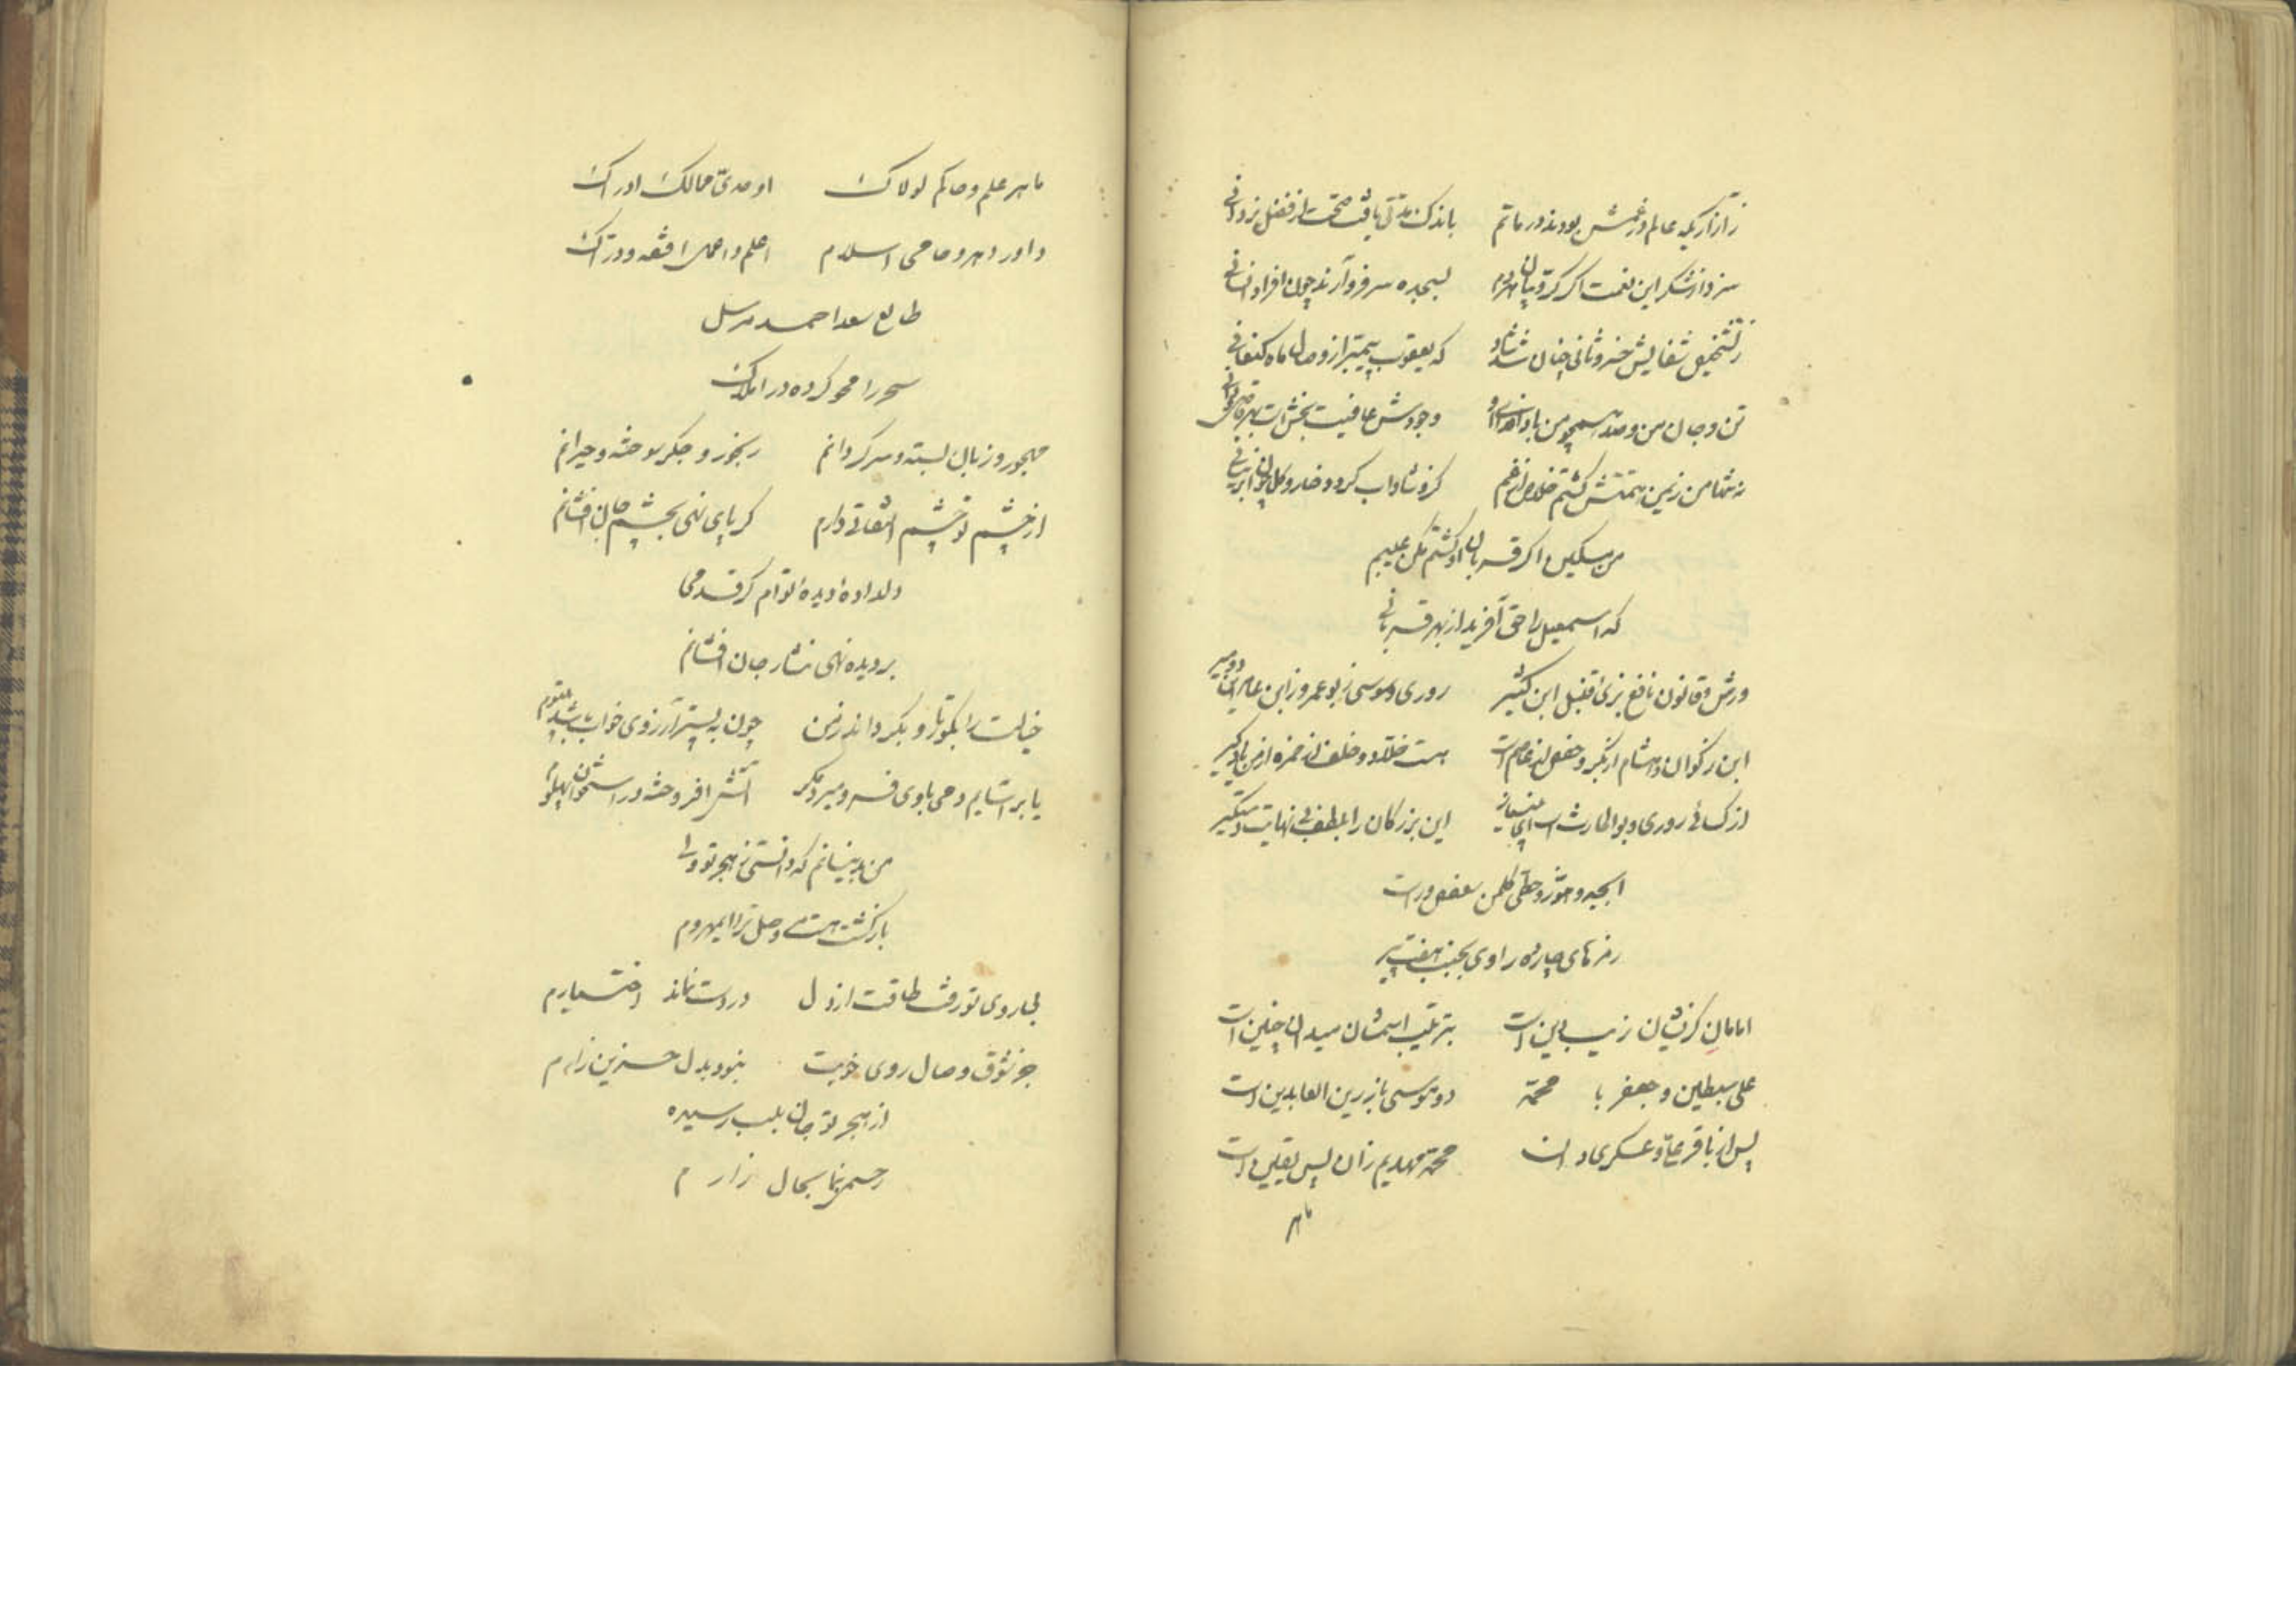 ز آزاریکه عالم در غمش بودند در ماتم باندک مدتی یافت صحت از فضل یزدانی
سزد از شکر این نعمت اگر کروبیان هر دم بسجده سر فرود آرند چون افراد انسانی
ز تشخیص شفایش خسرو ثانی چنان شد شاد که یعقوب پیمبر از وصال ماه کنعانی
تن و جان من و صد همچو من بادا فدای او وجودش عافیت بخش است بهره
نه تنها من ز یمن همتش گشتم خلاص از غم کزو شاداب گردد خار و گل چون ابر نیسانی
من مسکین اگر قربان او گشتم مکن عیبم
که اسمعیل را حق آفرید از بهر قربانی
ورش و قالون نافع بزی قنبل ابن کثیر دوری و سوسی ز بوعمرو ز ابن عامر این دو میر
ابن ذکوان و هشام از بکر و حفص از عاصم است هست خلاد و خلف از حمزه از من یاد گیر
از کسائی دوری و بوالحارث است ای این بزرگان را بلطف بی نهایت دستگیر
ابجد و هوز و حطی کلمن سعفص ورست
رمزهای چارده راوی بجنب هفت پیر
امامان کزیشان زیب دین است بترتیب اسمشان میدان چنین است
علی سبطین و جعفر با محمد دو موسی باز زین العابدین است
پس از باقر علی و عسکری دان محمد مهدیم زان پس یقین است
ماهر
ماهر علم و حاکم لولاک اوحدی ممالک ادراک
داور دهر و حامی اسلام اعلم و اعمل افقه و دراک
طالع سعد احمد مرسل
سحر را محو کرده در املاک
مهجور و زبان بسته و سرگردانم رنجور و جگر سوخته و حیرانم
از چشم تو چشم التفاتی دارم گر پای نهی بچشم جان افشانم
دلداده و دیده تو ام گر قدمی
بر دیده نهی نثار جان افشانم
خیالت را بگو تا رو بگرداند ز من چون به بستر آرزوی خواب باشد
یا بر آتشم دمی باوی فسرد میرد مگر آتش افروخته در استخوان پهلوم
من نه بینانم که دانستی ز هجر تو ولی
بازگشت وصل ترا
بی روی تو رفت طاقت از دل در دست نماند اختیارم
جز شوق وصال روی خوبت نبود بدل حزین زارم
از هجر تو جان بلب رسیده
رحمی بنما بحال زارم